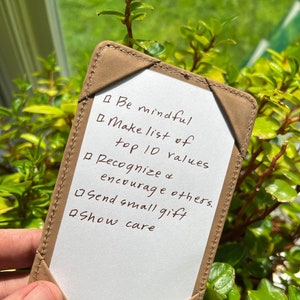 ☐ Be mindful
☐ Make list of
top 10 values
☐ Recognize &
encourage others.
☐ Send small gift
☐ Show care